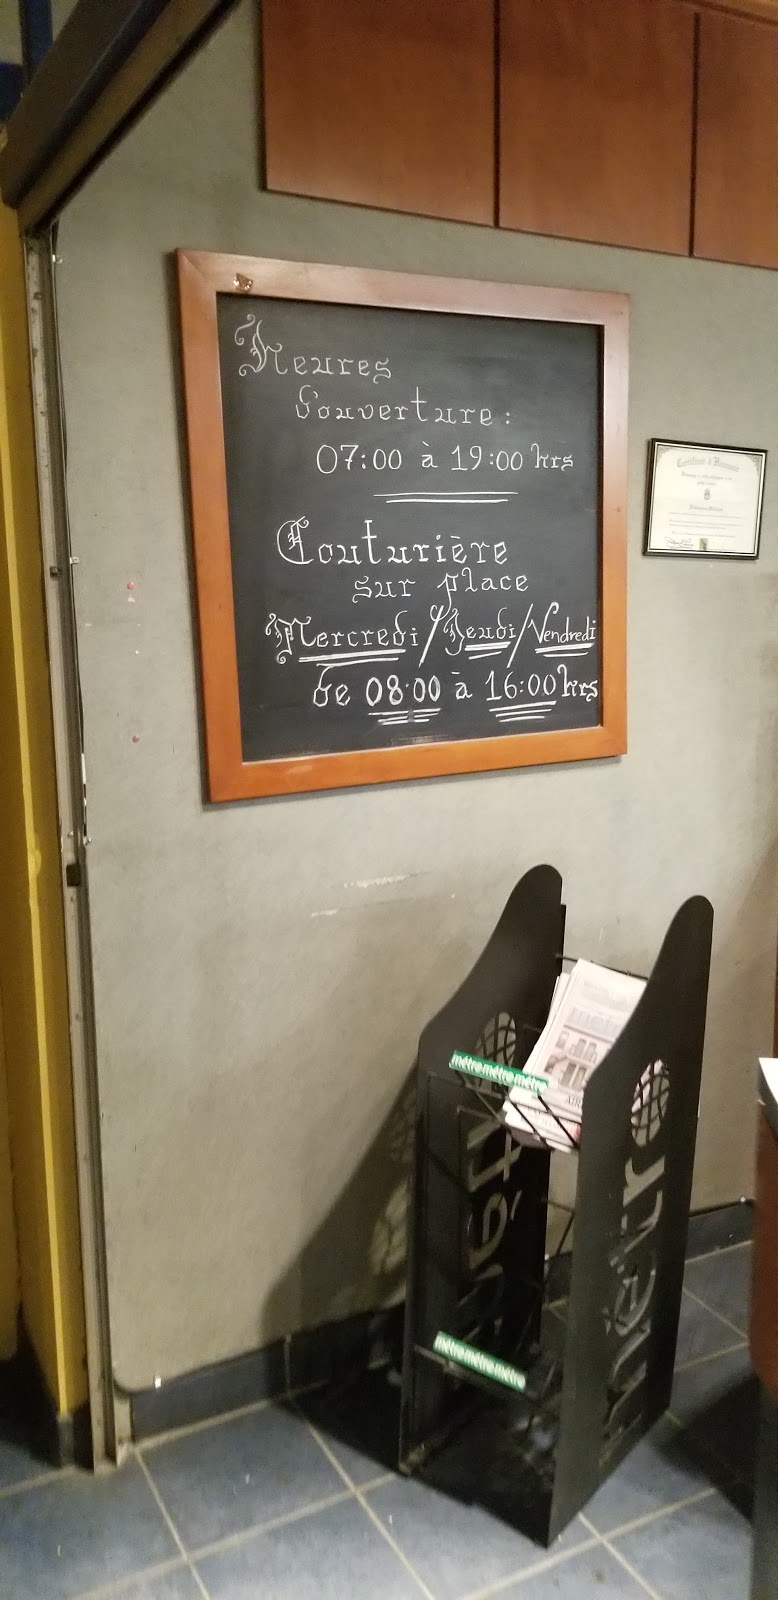 Heures
d'ouverture :
07:00 à 19:00 hrs
Couturière
sur place
Mercredi/Jeudi/Vendredi
de 08:00 à 16:00 hrs
métro métro métro
métro
métro métro métro
métro